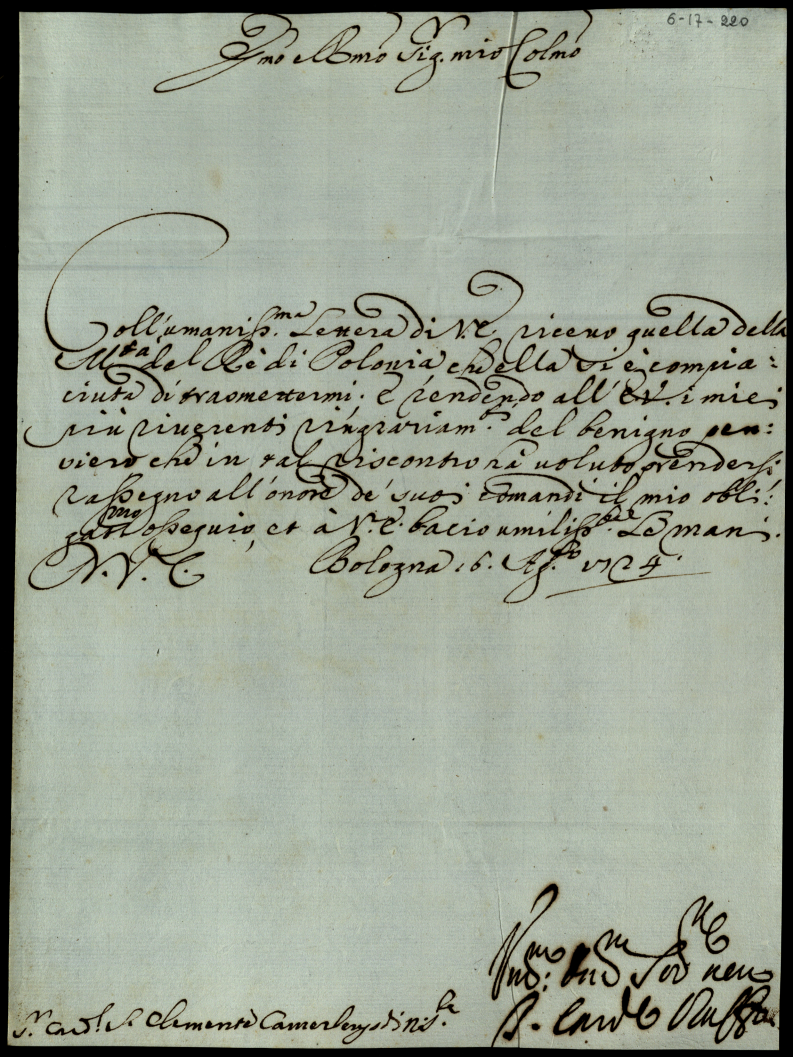 6-17-220
Emo e Rmo Sig. mio Colmo
Coll'umaniss.ma Lettera di V.E. ricevo quella della
M.tà del Rè di Polonia che ella si è compia:
ciuta di trasmettermi. E rendendo all'E.V. i miei
più riverenti ringraziam.ti del benigno pen:
siero che in tal riscontro hà voluto prendersi
rassegno all'onore de' suoi comandi il mio obli:
gatt.mo osseguio, et à V.E. bacio umiliss.te Le mani.
Bologna 16. Ag.to 1724.
S.r Card.l S. Clemente
Serv
Card Ruffo